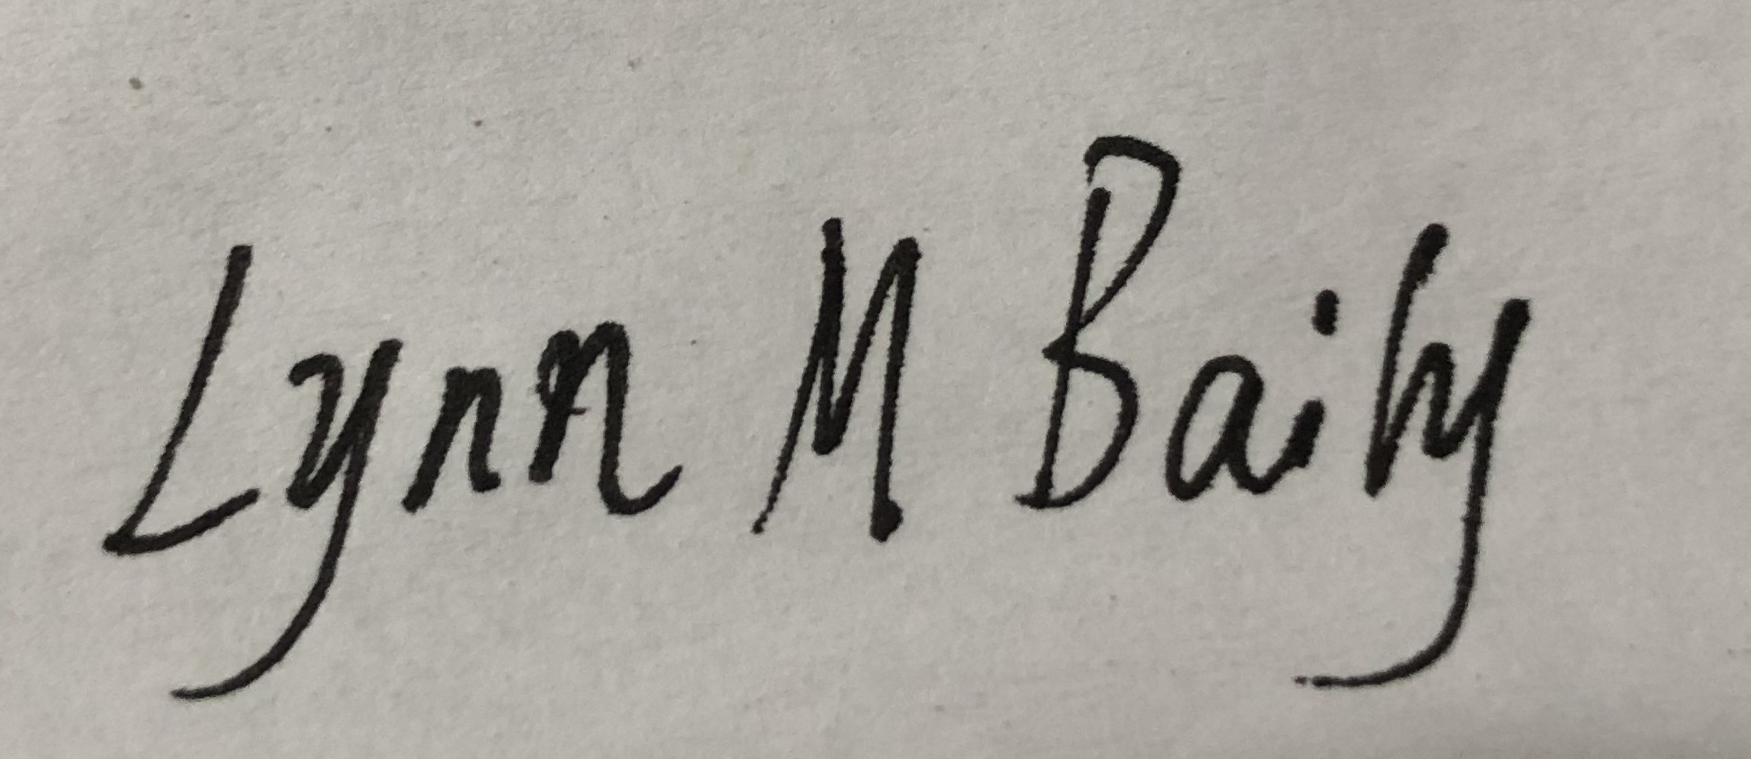 Lynn M Baily